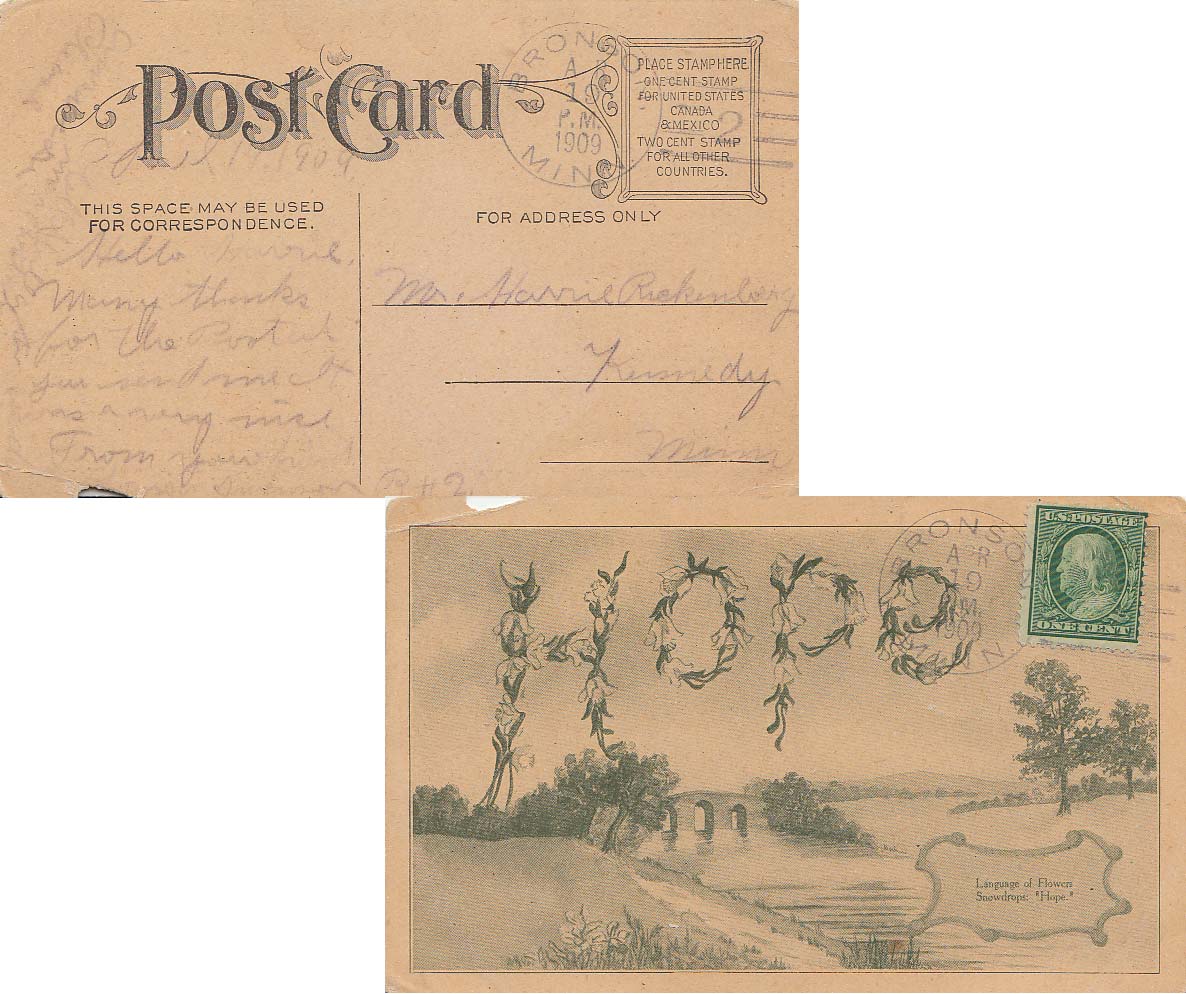 Post Card
BRONSON
AP
19
P.M.
1909
MINN
2
PLACE STAMP HERE
ONE CENT STAMP
FOR UNITED STATES
CANADA
& MEXICO
TWO CENT STAMP
FOR ALL OTHER
COUNTRIES.
April 19, 1909
THIS SPACE MAY BE USED
FOR CORRESPONDENCE.
FOR ADDRESS ONLY
Hello Harrie,
Many thanks
for the Postcal
you send me It
was a very nice
From your
Mr. Harrie Rickenberg
Kennedy
Minn
R # 2.
HOPE
BRONSON
AP
19
P.M.
1909
MINN
U.S. POSTAGE
ONE CENT
Language of Flowers
Snowdrops: "Hope."